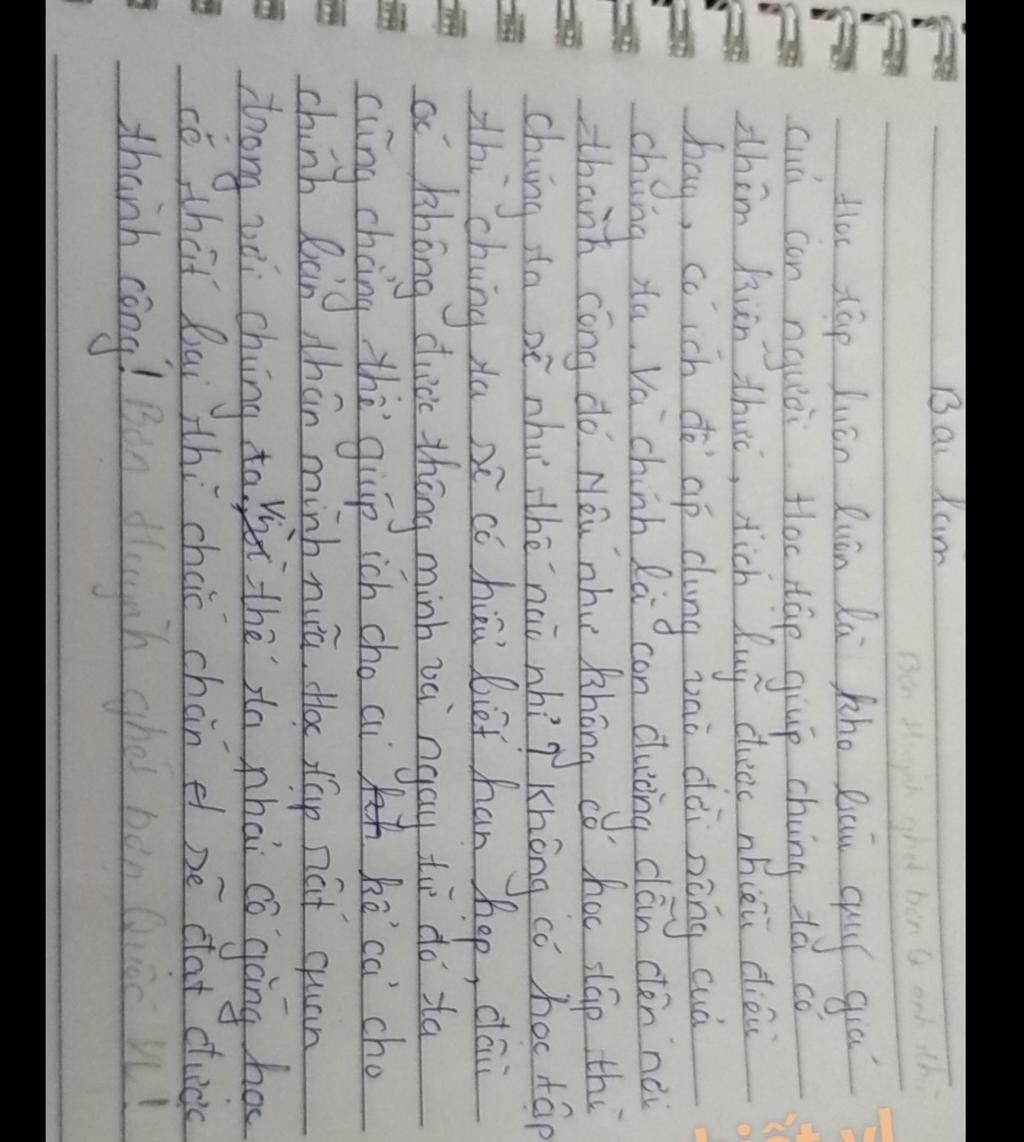 Bài làm
Bạn Huỳnh ghét bạn
Học tập luôn luôn là kho báu quý giá
của con người. Học tập giúp chúng ta có
thêm kiến thức, tích luỹ được nhiều điều
hay, có ích để áp dụng vào đời sống của
chúng ta. Và chính là con đường dẫn đến nơi
thành công đó. Nếu như không có học tập thì
chúng ta sẽ như thế nào nhỉ? Không có học tập
thì chúng ta sẽ có hiểu biết hạn hẹp, đầu
óc không được thông minh và ngay từ đó ta
cũng chẳng thể giúp ích cho ai kể cả cho
chính bản thân mình nữa. Học tập rất quan
trọng với chúng ta. Vì thế ta phải cố gắng học
có thất bại thì chắc chắn sẽ đạt được
thành công! Bạn Huỳnh ghét bạn Quốc Vi!
biết vl